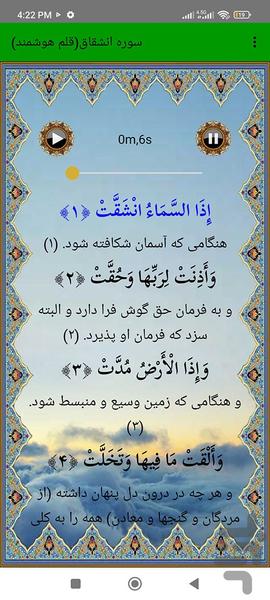 4:22 PM
سوره انشقاق(قلم هوشمند)
0m,6s
إِذَا السَّمَاءُ انْشَقَّتْ ﴿۱﴾
هنگامی که آسمان شکافته شود. (۱)
وَأَذِنَتْ لِرَبِّهَا وَحُقَّتْ ﴿۲﴾
و به فرمان حق گوش فرا دارد و البته
سزد که فرمان او پذیرد. (۲)
وَإِذَا الْأَرْضُ مُدَّتْ ﴿۳﴾
و هنگامی که زمین وسیع و منبسط شود.
(۳)
وَأَلْقَتْ مَا فِيهَا وَتَخَلَّتْ ﴿۴﴾
و هر چه در درون دل پنهان داشته (از
مردگان و گنجها و معادن) همه را به کلی